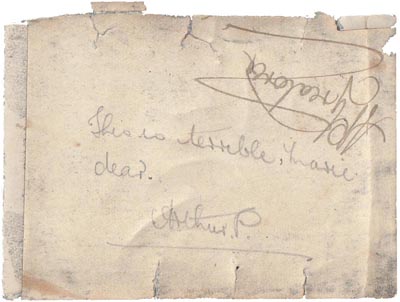 This is terrible, Marie
dear..
Arthur. P.